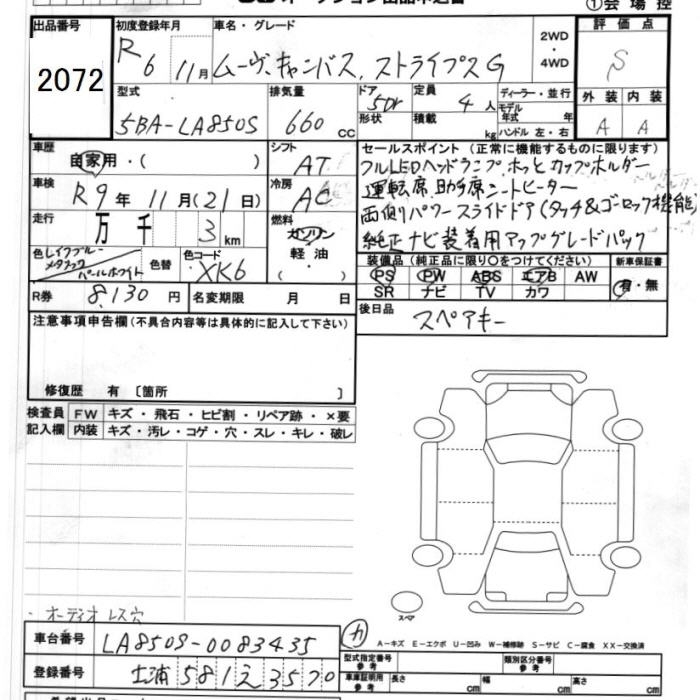 ①会場控
出品番号 初度登録年月 車名・グレード 評価点
2072 R6 11月 ムーヴ キャンバス ストライプス G 2WD・4WD S
型式 排気量 ドア 定員 ディーラー・並行 外装 内装
5BA-LA850S 660 cc 5Dr 4人 モデル年式 年 A A
形状 積載 kg ハンドル 左・右
車歴 自家用・( ) シフト AT セールスポイント(正常に機能するものに限ります)
フルLEDヘッドランプ ホッとカップホルダー
車検 R9年11月(21日) 冷房 AC 運転席 助手席シートヒーター
走行 万 千 3km 燃料 ガソリン 軽油・( ) 両側パワースライドドア(タッチ&ゴーロック機能)
色 レイクブルーメタリック パールホワイト 色替 色コード XK6 純正ナビ装着用アップグレードパック
装備品(純正品に限り○をつけてください) 新車保証書
PS PW ABS エアB AW 有・無
R券 8,130円 名変期限 月 日 SR ナビ TV カワ
注意事項申告欄(不具合内容等は具体的に記入して下さい) 後日品 スペアキー
修復歴 有 〔箇所 〕
検査員 FW キズ・飛石・ヒビ割・リペア跡・×要
記入欄 内装 キズ・汚レ・コゲ・穴・スレ・キレ・破レ
・オーディオレス穴
スペア
車台番号 LA850S-0083435 カ A－キズ E－エクボ U－凹み W－補修跡 S－サビ C－腐食 XX－交換済
型式指定番号 参考 類別区分番号 参考
登録番号 土浦 581 え 3570 車庫証明用 参考 長さ cm 幅 cm 高さ cm